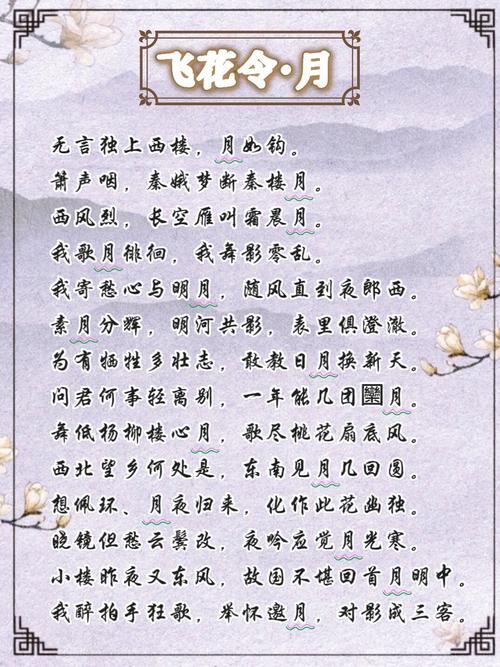 飞花令·月
无言独上西楼，月如钩。
箫声咽，秦娥梦断秦楼月。
西风烈，长空雁叫霜晨月。
我歌月徘徊，我舞影零乱。
我寄愁心与明月，随风直到夜郎西。
素月分辉，明河共影，表里俱澄澈。
为有牺牲多壮志，敢教日月换新天。
问君何事轻离别，一年能几团圞月。
舞低杨柳楼心月，歌尽桃花扇底风。
西北望乡何处是，东南见月几回圆。
想佩环、月夜归来，化作此花幽独。
晓镜但愁云鬓改，夜吟应觉月光寒。
小楼昨夜又东风，故国不堪回首月明中。
我醉拍手狂歌，举怀邀月，对影成三客。